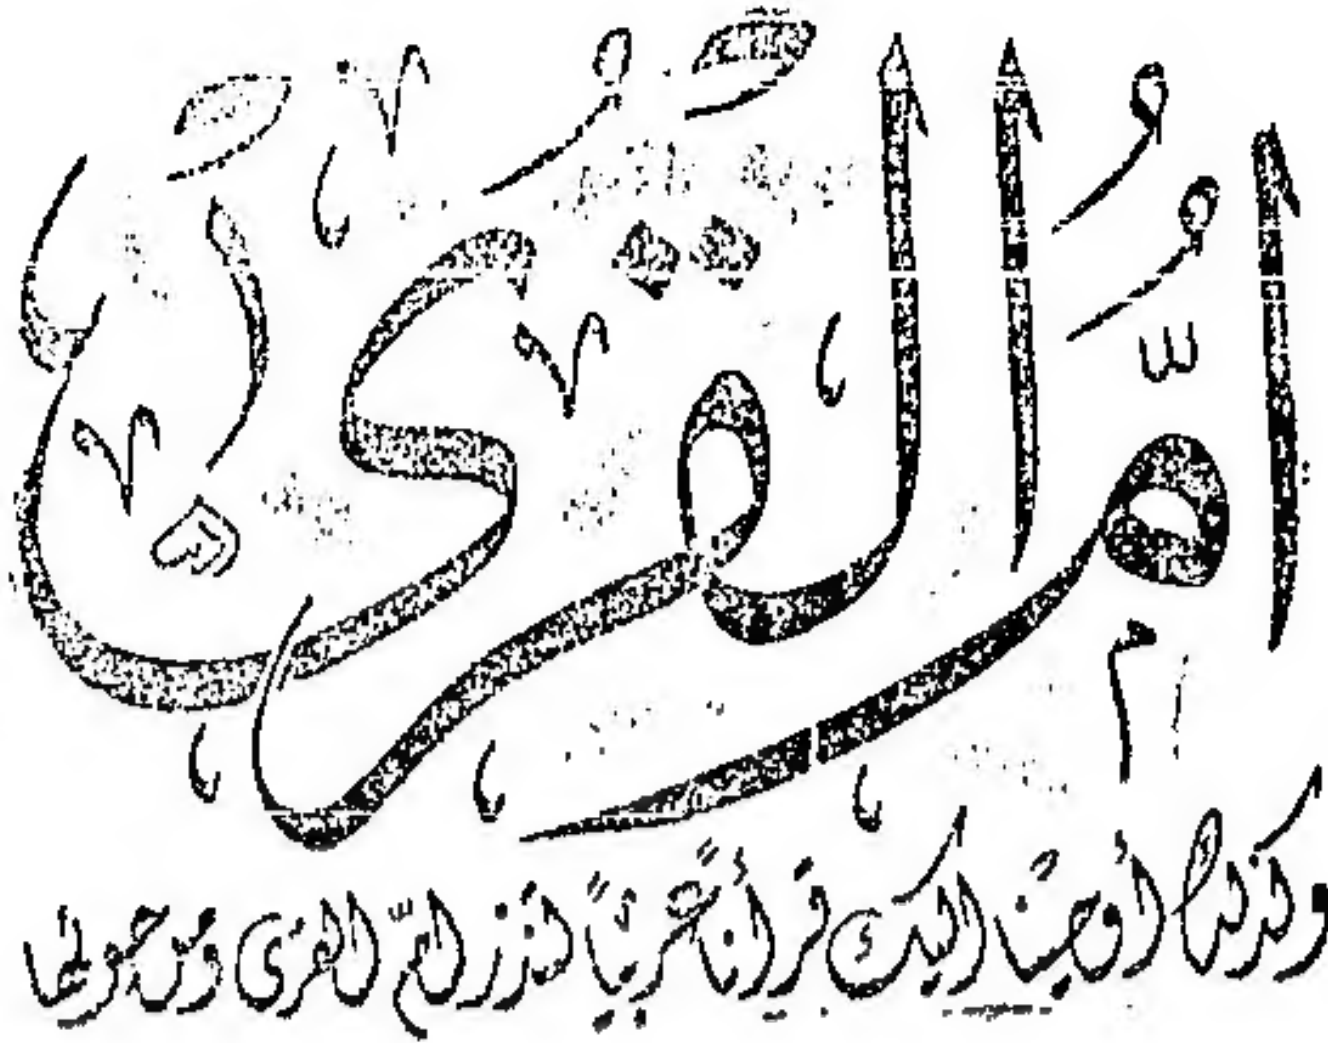 أمّ القُرى
وكذلك أوحينا إليك قرآناً عربياً لتنذر أمّ القرى ومن حولها